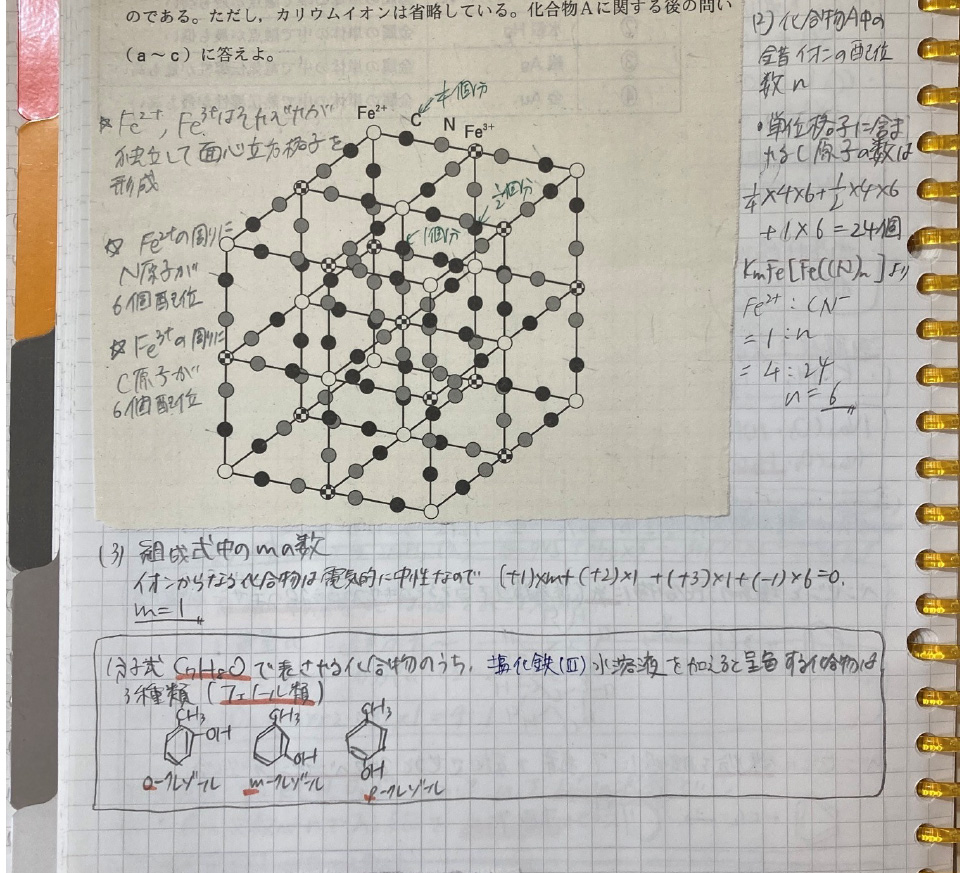 のである。ただし，カリウムイオンは省略している。化合物Aに関する後の問い
(a～c)に答えよ。
Fe²⁺
C
N
Fe³⁺
1/4個分
1/2個分
1個分
☆Fe²⁺, Fe³⁺はそれぞれが
独立して面心立方格子を
形成
☆ Fe²⁺の周りに
N原子が
6個配位
☆Fe³⁺の周りに
C原子が
6個配位
(2) 化合物A中の
錯イオンの配位
数 n
・単位格子に含ま
れるC原子の数は
1/4×4×6+1/2×4×6
+1×6=24個
KmFe[Fe(CN)n]より
Fe²⁺:CN⁻
=1:n
=4:24
n=6
(3) 組成式中のmの数
イオンからなる化合物は電気的に中性なので (+1)×m+(+2)×1+(+3)×1+(-1)×6=0.
m=1
分子式 C₇H₈O で表される化合物のうち, 塩化鉄(Ⅲ)水溶液を加えると呈色する化合物は
3種類(フェノール類)
CH₃
OH
o-クレゾール
CH₃
OH
m-クレゾール
CH₃
OH
p-クレゾール